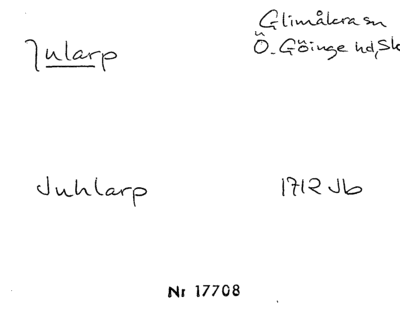 Jularp
Glimåkra sn
Ö. Göinge hd, Sk
Juhlarp
1712 Jb
Nr 17708